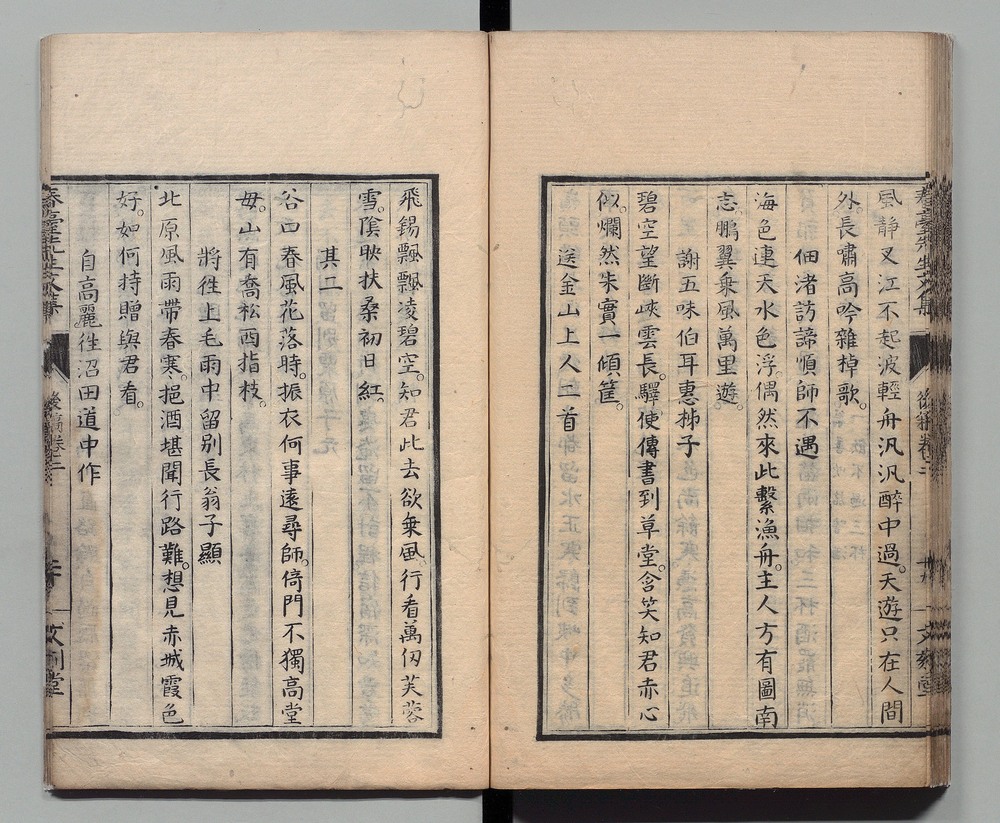 風静叉江不起波輕舟汎汎醉中過。天遊只在人間
外。長嘯高吟雜棹歌。
佃渚訪諦順師不遇
海色連天水色浮。偶然來此繫漁舟。主人方有圖南
志。鵬翼乗風萬里遊。
謝五味伯耳惠柹子
碧空望斷峽雲長。驛使傳書到草堂。含笑知君赤心
似。爛然朱實一傾筐。
送金山上人二首
飛錫飄飄凌碧空。知君此去欲乗風。行看萬仭芙蓉
雪。陰映扶桑初日紅。
其二
谷口春風花落時。振衣何事遠尋師。倚門不獨高堂
母。山有喬松西指枝。
將徃上毛雨中留别長翁子顯
北原風雨帶春寒。挹酒堪聞行路難。想見赤城霞色
好。如何持贈與君看。
自高麗徃沼田道中作
春臺先生文集
後稿卷二